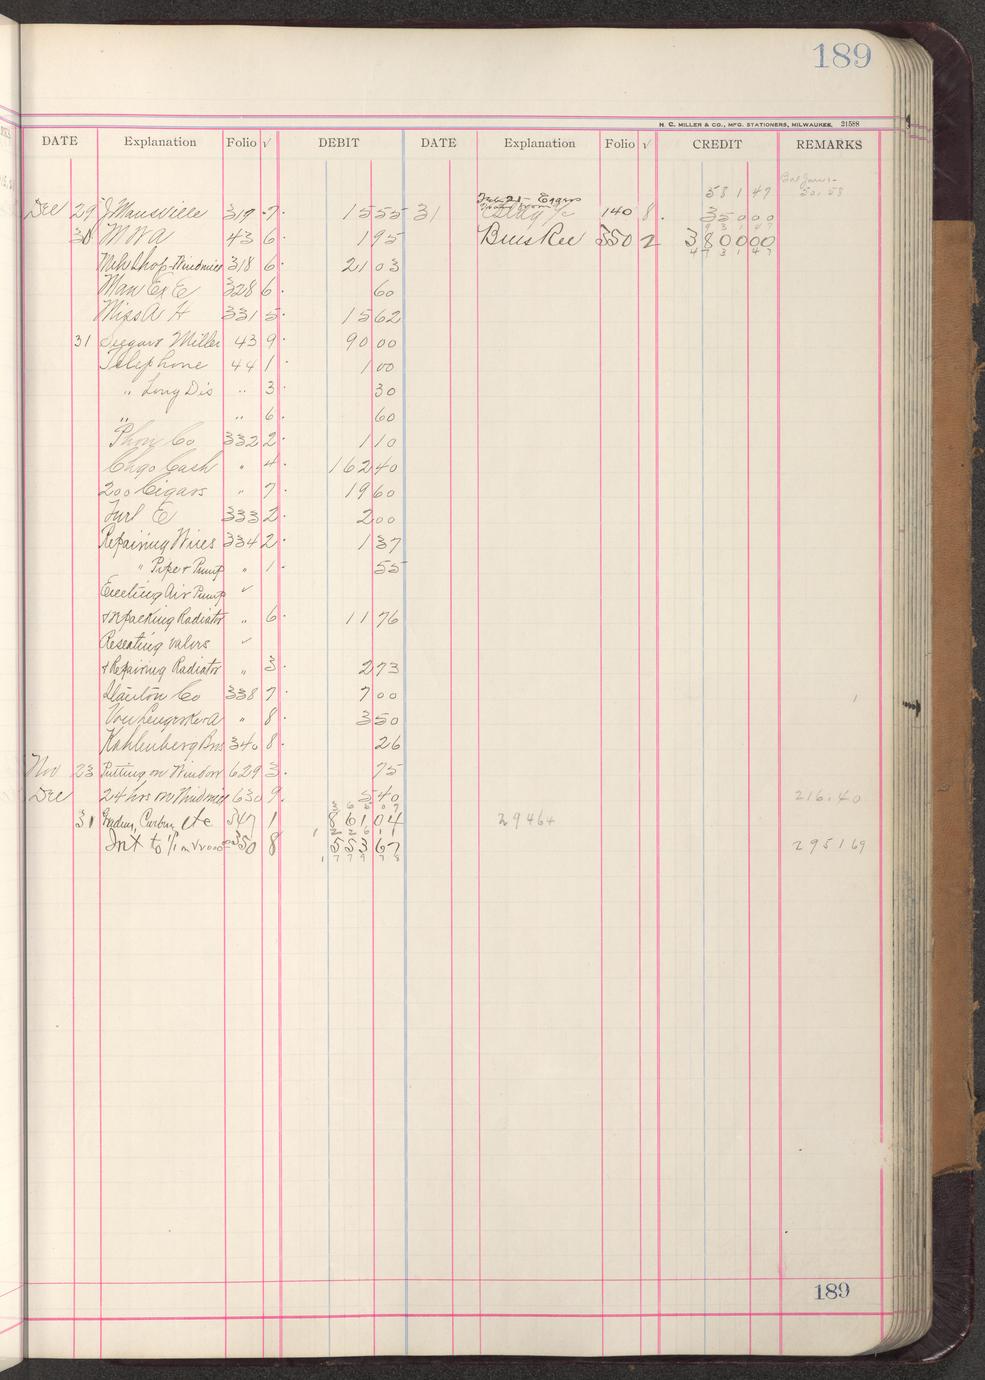 189
H. C. MILLER & CO., MFG. STATIONERS, MILWAUKEE. 21588
DATE Explanation Folio √ DEBIT DATE Explanation Folio √ CREDIT REMARKS
581 47 50.58
Dec 29 J Mansville 319 7 15 55 31 140 8 350 00
30 M W A 43 6 1 95 Bus Rec 350 2 3800 00
4731 47
Mch Shop Windmill 318 6 21 03
Man Ex E 328 6 60
Miss A H 331 5 15 62
31 Miller 43 9 90 00
Telephone 44 1 1 00
" Long Dis " 3 30
" " 6 60
Phon Co 332 2 1 10
Chgo Cash " 4 162 40
200 Cigars " 7 19 60
Furl E 333 2 2 00
Repairing Wires 334 2 1 37
" Pipe & Pump " 1 55
Erecting Air Pump ✓
& repacking Radiator " 6 11 76
Reseating valves ✓
& Repairing Radiator " 3 2 73
Co 338 7 7 00
" 8 3 50
Kahlenberg Bros 340 8 26
Nov 23 Putting on Window 629 3 75
Dec 24 hrs on Windmill 630 9 5 40 216.40
31 etc 347 1 861 04 29464
Int to 1/1 350 8 553 67 2951 69
1779 78
189